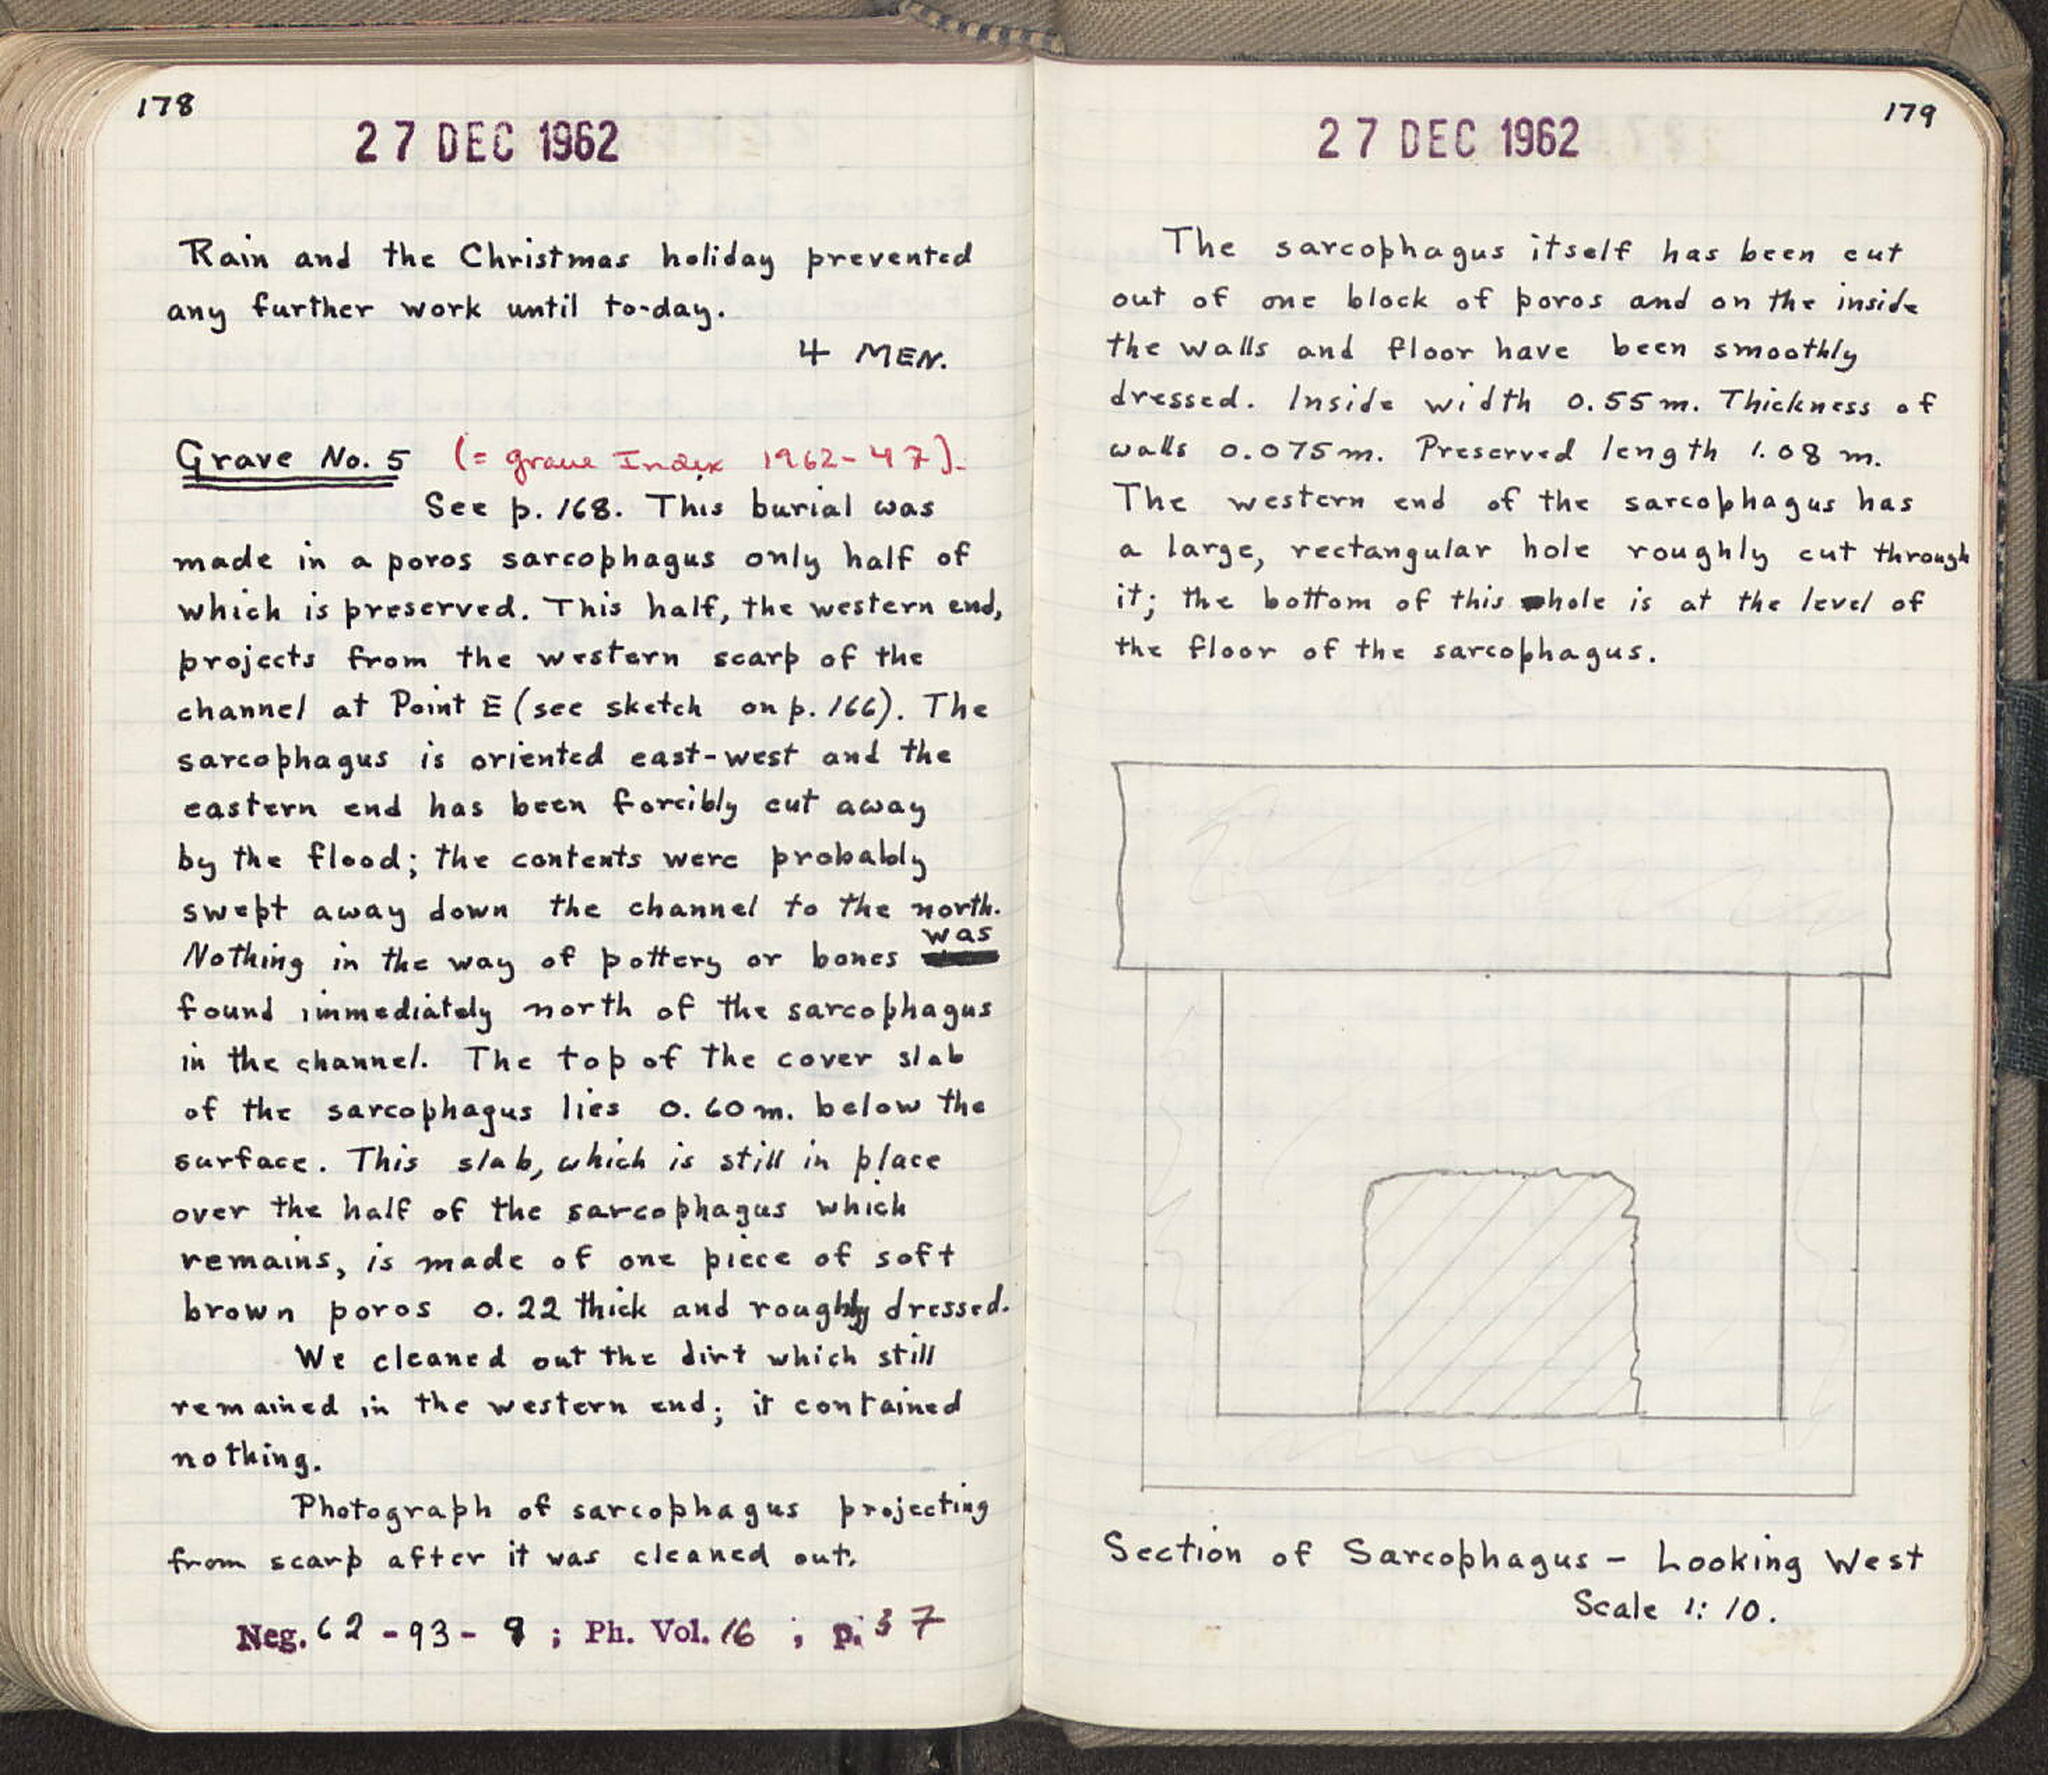 178
27 DEC 1962
Rain and the Christmas holiday prevented
any further work until to-day.
4 MEN.
Grave No. 5 (= grave Index 1962-47).
See p. 168. This burial was
made in a poros sarcophagus only half of
which is preserved. This half, the western end,
projects from the western scarp of the
channel at Point E (see sketch on p. 166). The
sarcophagus is oriented east-west and the
eastern end has been forcibly cut away
by the flood; the contents were probably
swept away down the channel to the north.
Nothing in the way of pottery or bones was
found immediately north of the sarcophagus
in the channel. The top of the cover slab
of the sarcophagus lies 0.60 m. below the
surface. This slab, which is still in place
over the half of the sarcophagus which
remains, is made of one piece of soft
brown poros 0.22 thick and roughly dressed.
We cleaned out the dirt which still
remained in the western end; it contained
nothing.
Photograph of sarcophagus projecting
from scarp after it was cleaned out.
Neg. 62-93-9; Ph. Vol. 16; p. 37
179
27 DEC 1962
The sarcophagus itself has been cut
out of one block of poros and on the inside
the walls and floor have been smoothly
dressed. Inside width 0.55 m. Thickness of
walls 0.075 m. Preserved length 1.08 m.
The western end of the sarcophagus has
a large, rectangular hole roughly cut through
it; the bottom of this hole is at the level of
the floor of the sarcophagus.
Section of Sarcophagus - Looking West
Scale 1:10.